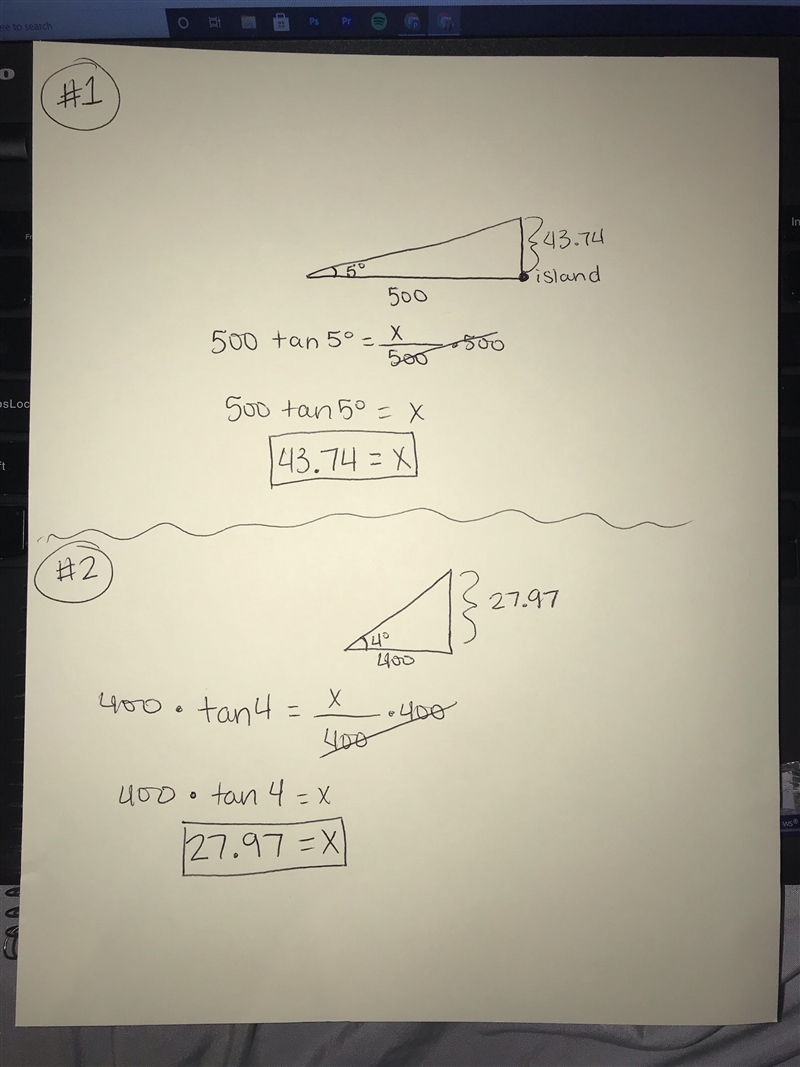 e to search
Ps
Pr
#1
43.74
5°
island
500
500 tan 5° = x/500 · 500
500 tan 5° = x
43.74 = x
#2
27.97
4°
400
400 · tan 4 = x/400 · 400
400 · tan 4 = x
27.97 = x